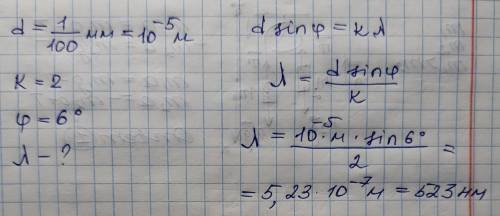 d = 1/100 мм = 10⁻⁵ м
к = 2
φ = 6°
λ – ?
d sinφ = кλ
λ = d sinφ / к
λ = 10⁻⁵ м · sin 6° / 2 =
= 5,23 · 10⁻⁷ м = 523 нм